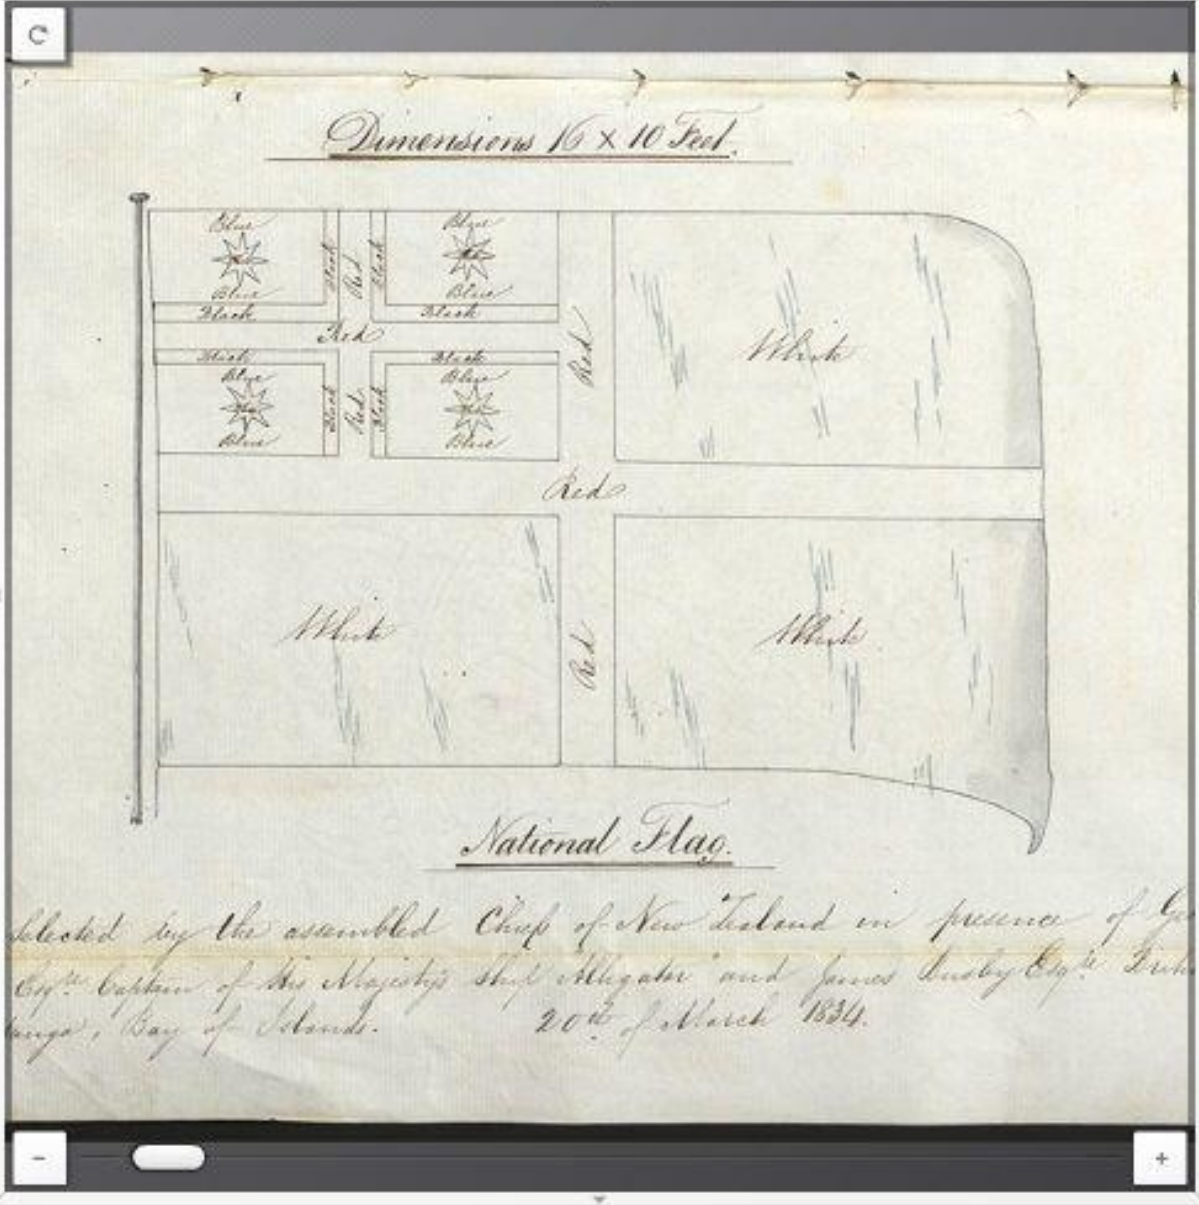 Dimensions 16 X 10 Feet.
Blue Blue
Black Red Black
Blue Blue
Black Black
Red
Black Black
Blue Blue
Black Red Black
Blue Blue
Red
White
Red
White
Red
White
National Flag.
selected by the assembled Chiefs of New Zealand in presence of
Esqre. Captain of His Majesty's Ship "Alligator" and James Busby Esqre.
Bay of Islands. 20th of March 1834.